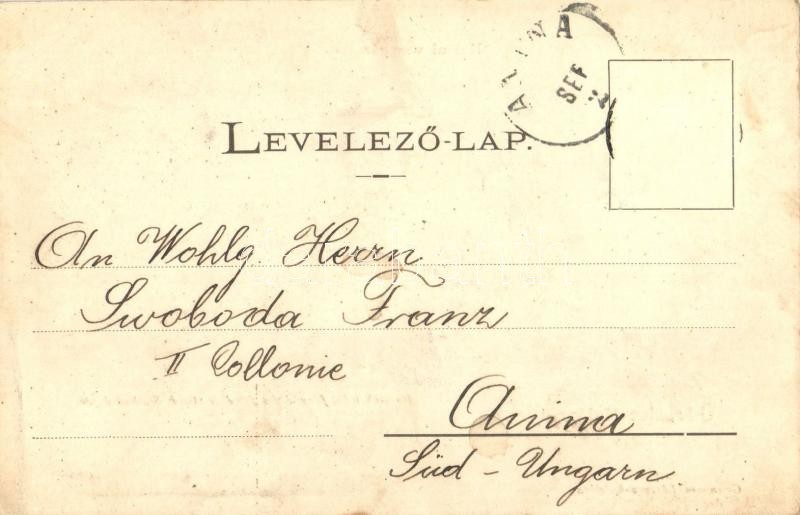 LEVELEZŐ-LAP.
An Wohlg. Herrn
Swoboda Franz
II Collonie
Anina
Süd - Ungarn
ANINA
SEP